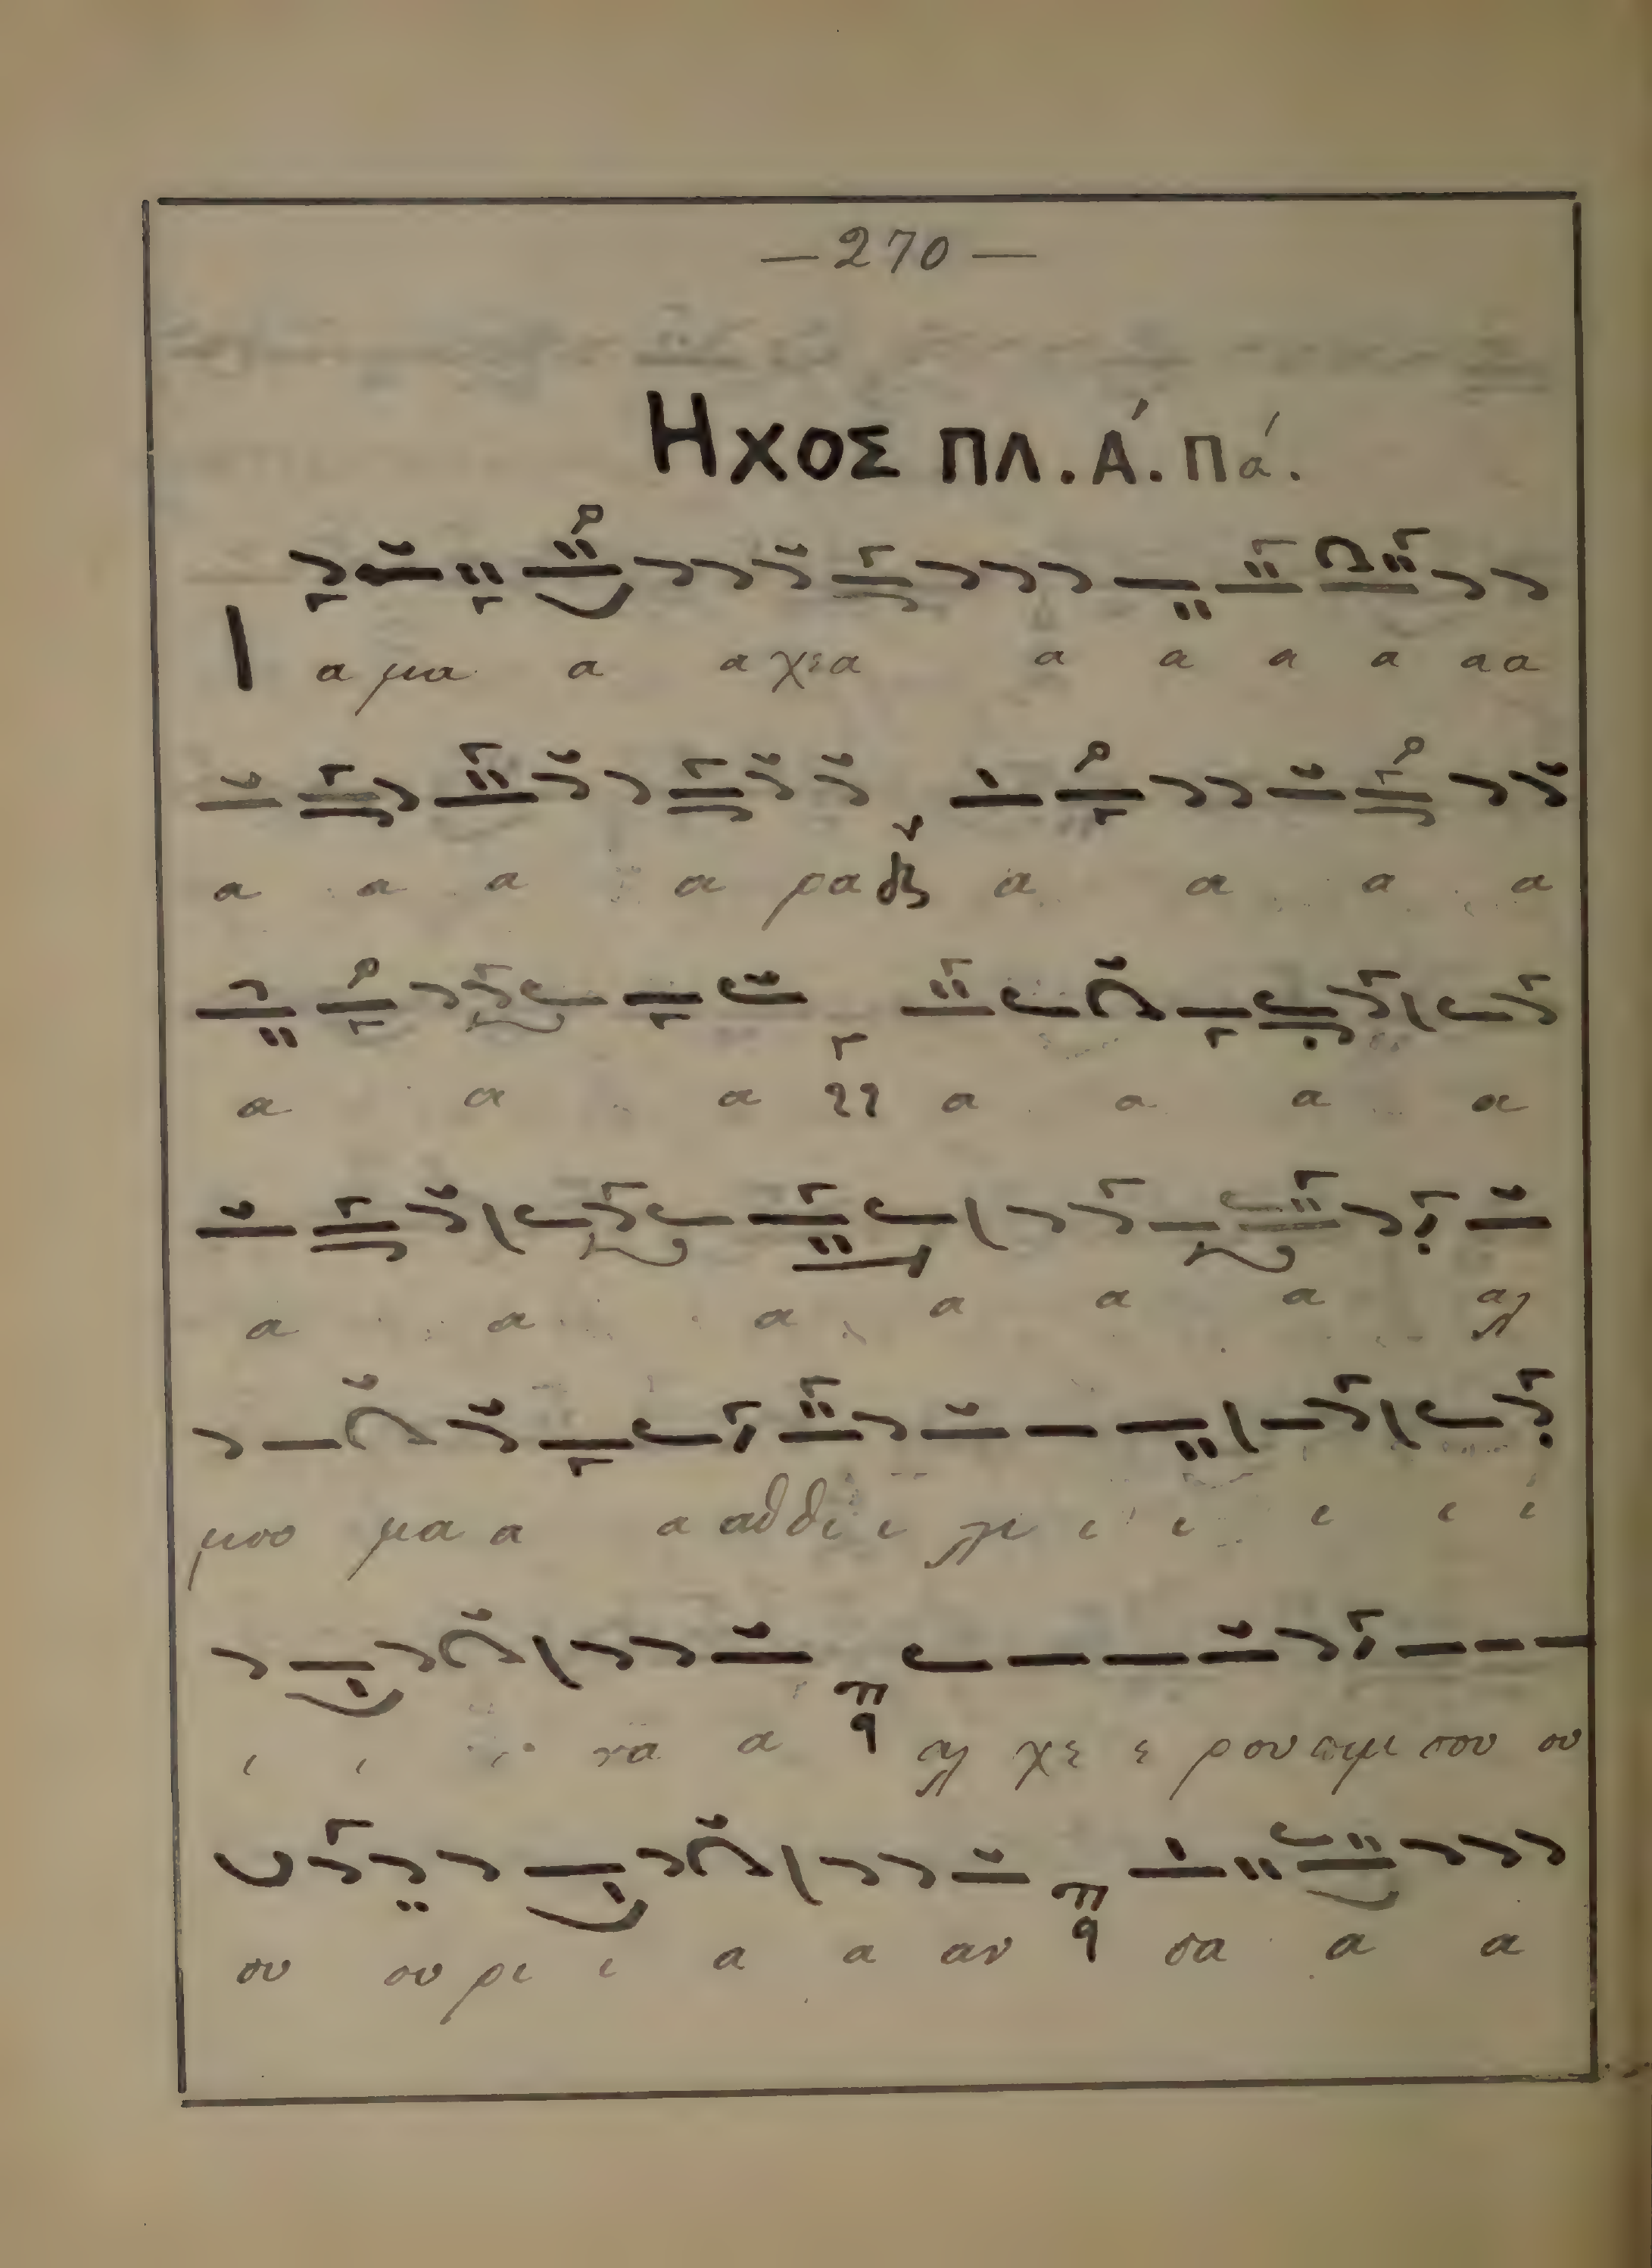 — 270 —
Ηχος πλ. Ά. Πά.
Ι α μα α α χεα α α α α α α
α α α α ρα α α α α
α α α α α α α
α α α α α α αλ
μου μα α α αθ θι ι λι ι ι ι ι ι
ι ι να α αλ χε ε ρου σιμ που ου
ου ου ρι ι α α αν σα α α